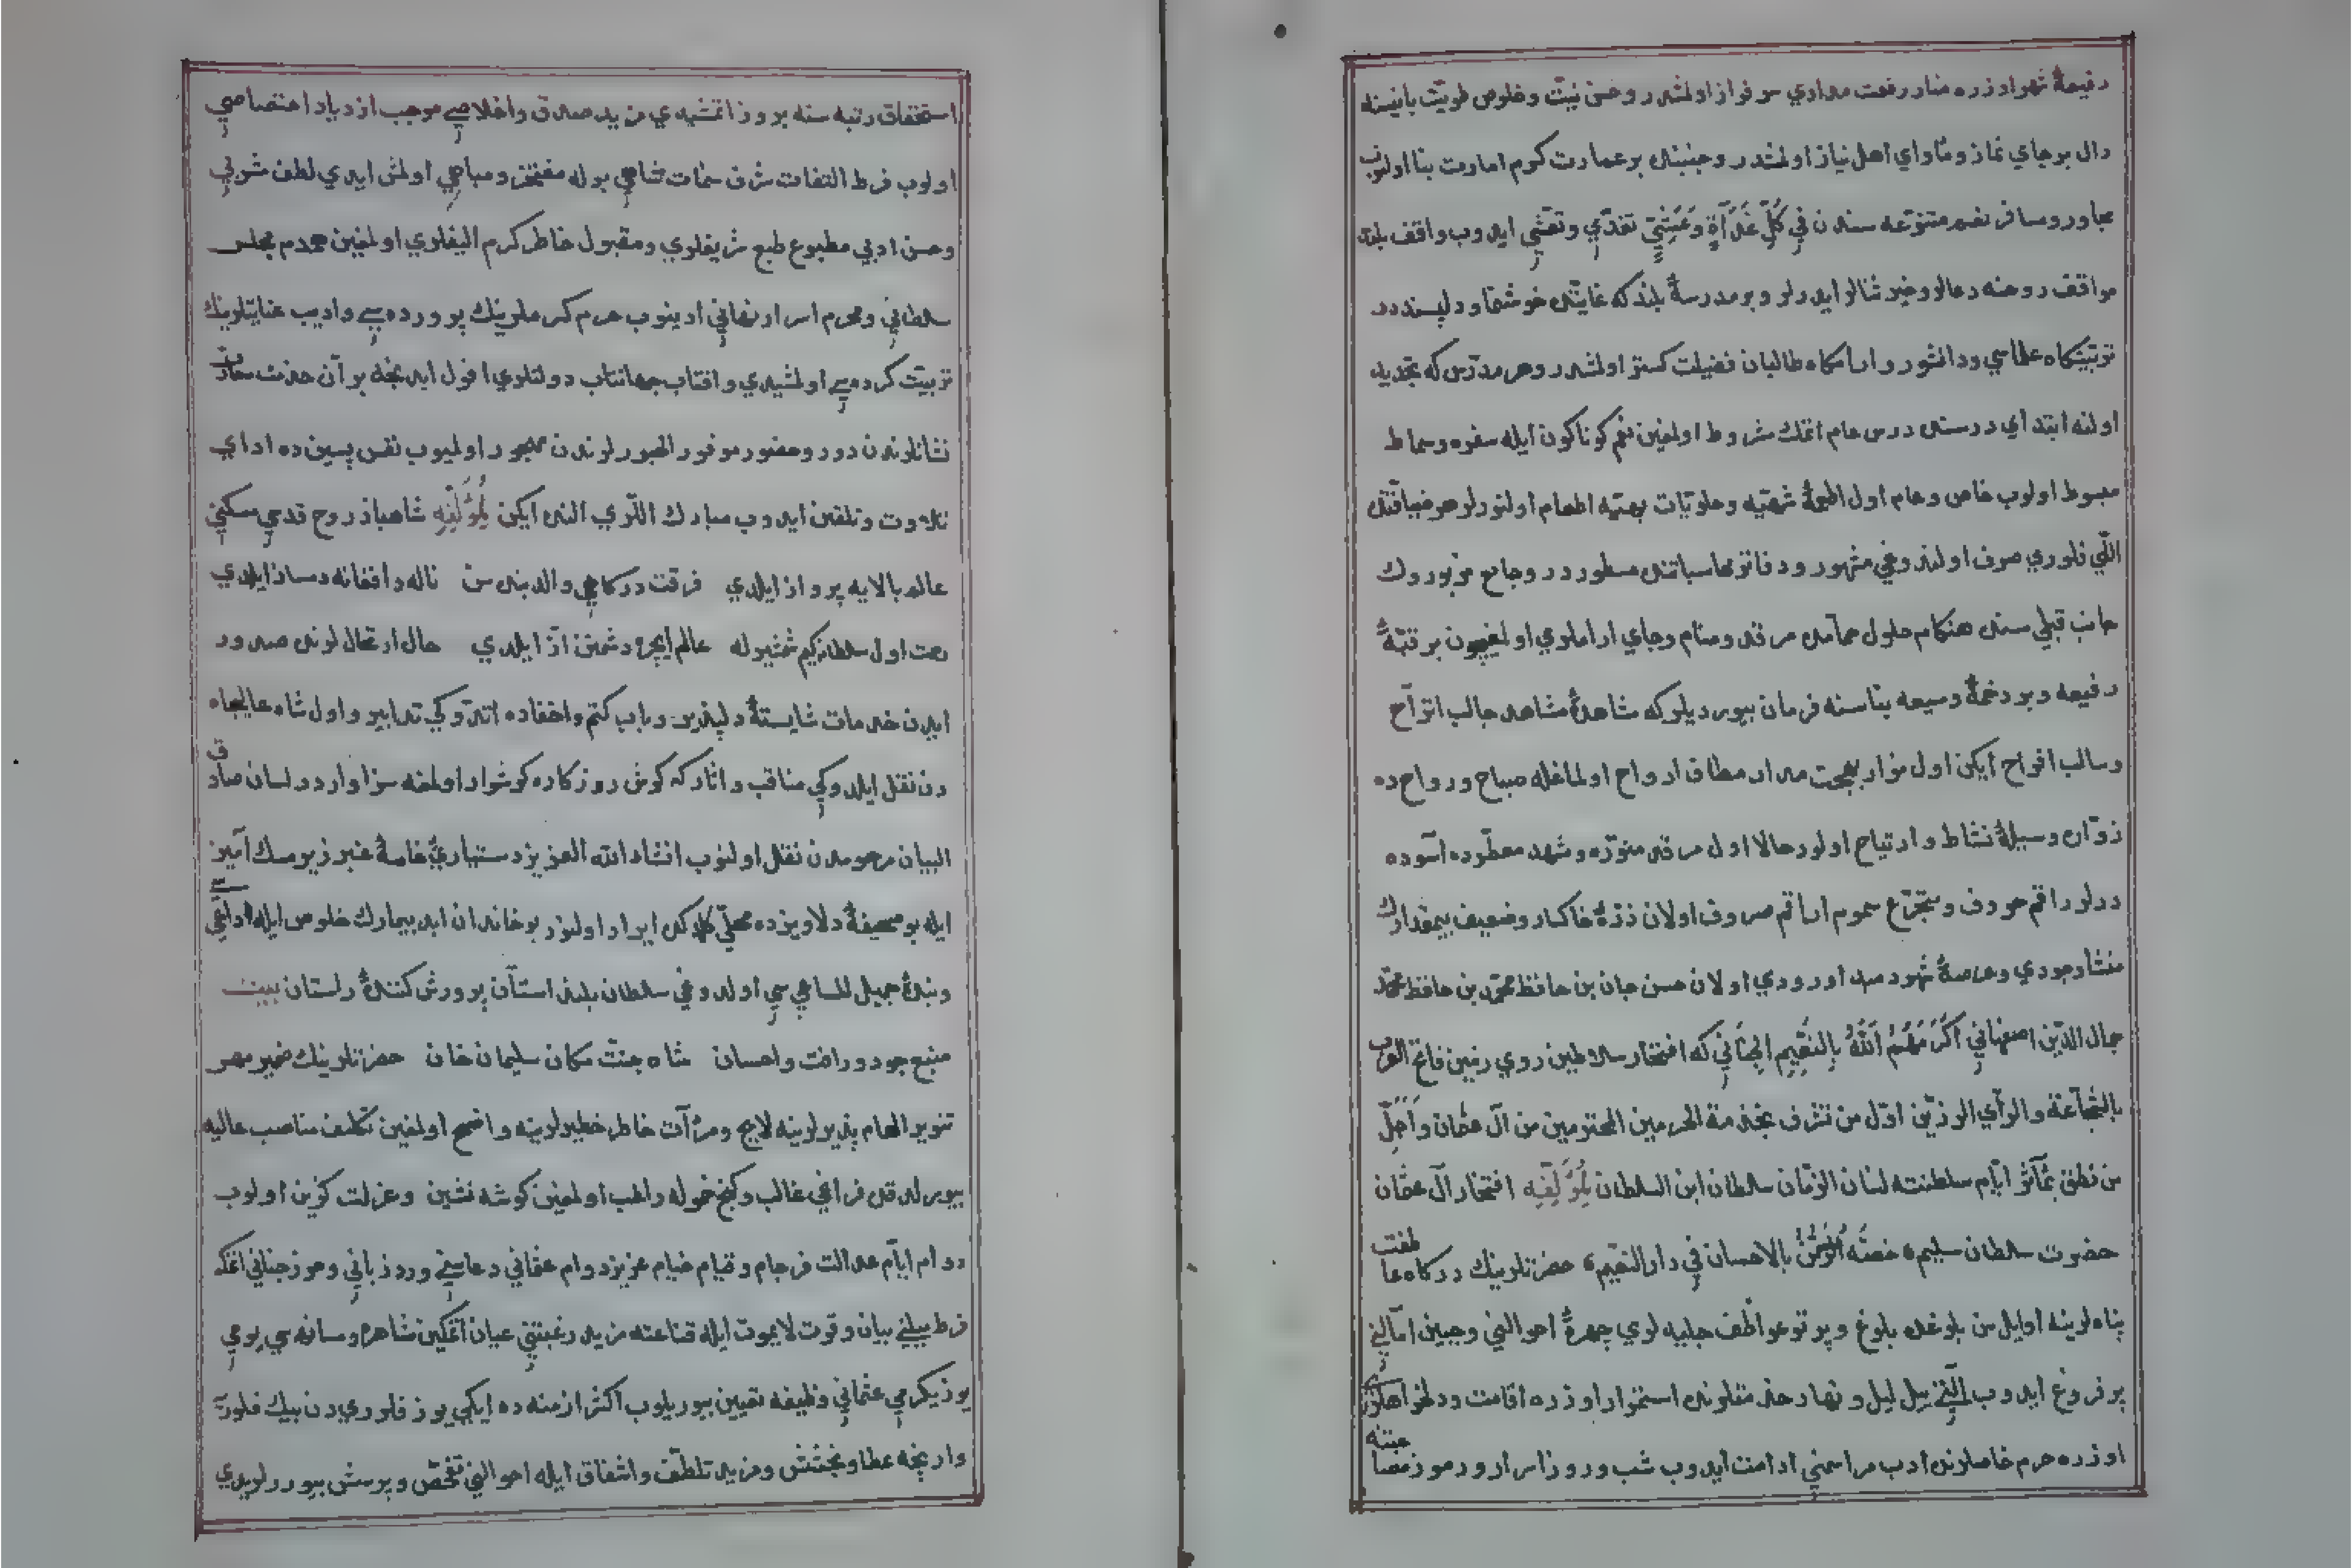 رفیعهٔ شهر اوزره منار رفعت مداری سر فراز اولمشدر و حسن نیت و خلوص طویت بانیسنه
دال بر جای نماز و مأوای اهل نیاز اولمشدر و جنبنده بر عمارت کرم امارت بنا اولنوب
مجاور و مسافر نعم متنوعه سندن فِي كُلِّ غَدَآةٍ وَعَشِيٍّ تغدّي وتعشّي ایدوب واقف بلند
مواقف روحنه دعالر و خیر ثنالر ایدرلر و بر مدرسهٔ بلند که غایتده خوشنما و دلپسنددر
تربیتکاه علماسی و دانشور و ارامکاه طالبان فضیلت کستر اولمشدر و هر مدرّس که تجدید
اولنه ابتدای درسنده درس عام اتمك مشروط اولمغین نعم کوناکون ایله سفره و سماط
مبسوط اولوب خاص و عام اول اطعمهٔ شهیّه و حلویّات بهیّه اطعام اولنورلر هر ضیافتده
اللّی فلوری صرف اولندوغی مشهور و دفاتر محاسباتنده مسطور در و جامع مزبورك
جانب قبلی سنده هنکام حلول حمامده مرقد و منام و جای اراملری اولمغیچون بر قبّهٔ
رفیعه و بر دخمهٔ وسیعه بناسنه فرمان بیوردیلر که مشاهدهٔ مشاهد جالب اتراح
وسالب افراح ایکن اول مزار بهجت مدار مطاف ارواح اولماغله صباح و رواح ده
زوّاره وسیلهٔ نشاط و ارتیاح اولور حالا اول مرقد منوّره و مشهد معطّرده آسوده
درلر راقم حروف و متجرّع سموم اراقم صروف اولان ذرّهٔ خاکسار و ضعیف بیمقدارك
منشأ وجودی و عرصهٔ شهوده سبب اورودی اولان حسن جان بن حافظ محمّد بن حافظ محمّد
جمال الدّین اصفهانی أَكْرَمَهُمُ اللّٰهُ بِالنَّعِيمِ الْجَنَانِي که افتخار سلاطین روی زمین فاتح العرب
بالشّجاعة والرأي الرزین اوّل من تشرّف بخدمة الحرمین المحترمین من آل عثمان و أجلّ
من نطق بمآثر ایّام سلطنته لسان الزمان سلطان ابن السلطان لِمُؤَلِّفِهِ افتخار آل عثمان
حضرت سلطان سلیم ٥ خصّه الرّحمٰن بالاحسان في دار النّعیم ٥ حضرتلرینك درکاه عاطفت
پناهلرینه اوایل سن بلوغده بلوغ و پرتو عواطف جلیه لری چهرهٔ احوالنی و جبین آمالنی
پر فروغ ایدوب اللّی ییل لیل و نهار خدمتلرنده استمرار اوزره اقامت و دلخواهلری
اوزره حرم خاصلرنده ادب مراسمنی ادامت ایدوب شب و روز اسرار و رموز مصاحبتنه
استحقاق رتبه سنه بروز اتمشیدی مزید صدق و اخلاصی موجب ازدیاد اختصاصی
اولوب فرط التفات شرف سمات شاهی بوله مفتخر و مباهی اولمش ایدی لطف مشربی
و حسن ادبی مطبوع طبع شریفلری و مقبول خاطر کرم الیفلری اولمغین همدم مجلس
سلطانی و محرم اسرار نهانی ادینوب حرم کرملرینك پرورده سی و ادیب عنایتلرینك
تربیت کرده سی اولمشیدی و افتاب جهانتاب دولتلری افول ایدنجه بر آن خدمت سعادت
نشانلرندن دور و حضور موفور الحبورلرندن مهجور اولمیوب نفس پسین ده ادای
تلاوت و تلقین ایدوب مبارك اللّری النده ایکن لِمُؤَلِّفِهِ شاهباز روح قدسی مسکنی
عالم بالایه پرواز ایلدی فرقت درکاهی والدبنده سن ناله و افغانه دمساز ایلدی
رحمت اول سلطانه کیم شمشیرله عالم ایچره دشمنن از ایلدی حال ارتحاللرنده صدور
ایدن خدمات شایستهٔ دلپذیر و باب کتم و اخفاده اتدوکی تدابیر و اول شاه عالیجاه
دن نقل ایلدوکی مناقب و اثار که کوش روزکاره کوشوار اولمغه سزاواردر لسان صادق
البیان مرحومدن نقل اولنوب انشاء الله العزیز دستیاریٔ خامهٔ عنبر ریز مسك آمیز
ایله بو صحیفهٔ دلاویزده محلّی کلدکده ایراد اولنور بو خاندان ابد بیمارك خلوص ایله داعیسی
و بندهٔ جمیل المساعی سی اولدوغی سلطان بلند آستان پرورش کنندهٔ راستان بیت
منبع جود و رأفت و احسان شاه جنّت مکان سلیمان خان حضرتلرینك ضمیر مهر
تنویر الهام پذیرلرینه لایح و مرآت خاطر خطیرلرینه واضح اولمغین تکلیف مناصب عالیه
بیورلدقده فراغی غالب و کنج خموله راغب اولمغین کوشه نشین و عزلت کزین اولوب
دوام ایّام عدالت فرجام و قیام خیام عزیز دوام عثمانی دعاسنی ورد زبانی و حرز جنانی اتمکه
فرط میلنی بیان و قوت لا یموت ایله قناعته مزید رغبتنی عیان اتمکین مشاهره و سالانه سی یومی
یوز یکرمی عثمانی وظیفه تعیین بیوریلوب اکثر ازمنه ده ایکی یوز فلوریدن بیك فلوری یه
وارنجه عطا و بخشش و مزید تلطّف و اشفاق ایله احوالنی تفحّص و پرسش بیورورلریدی